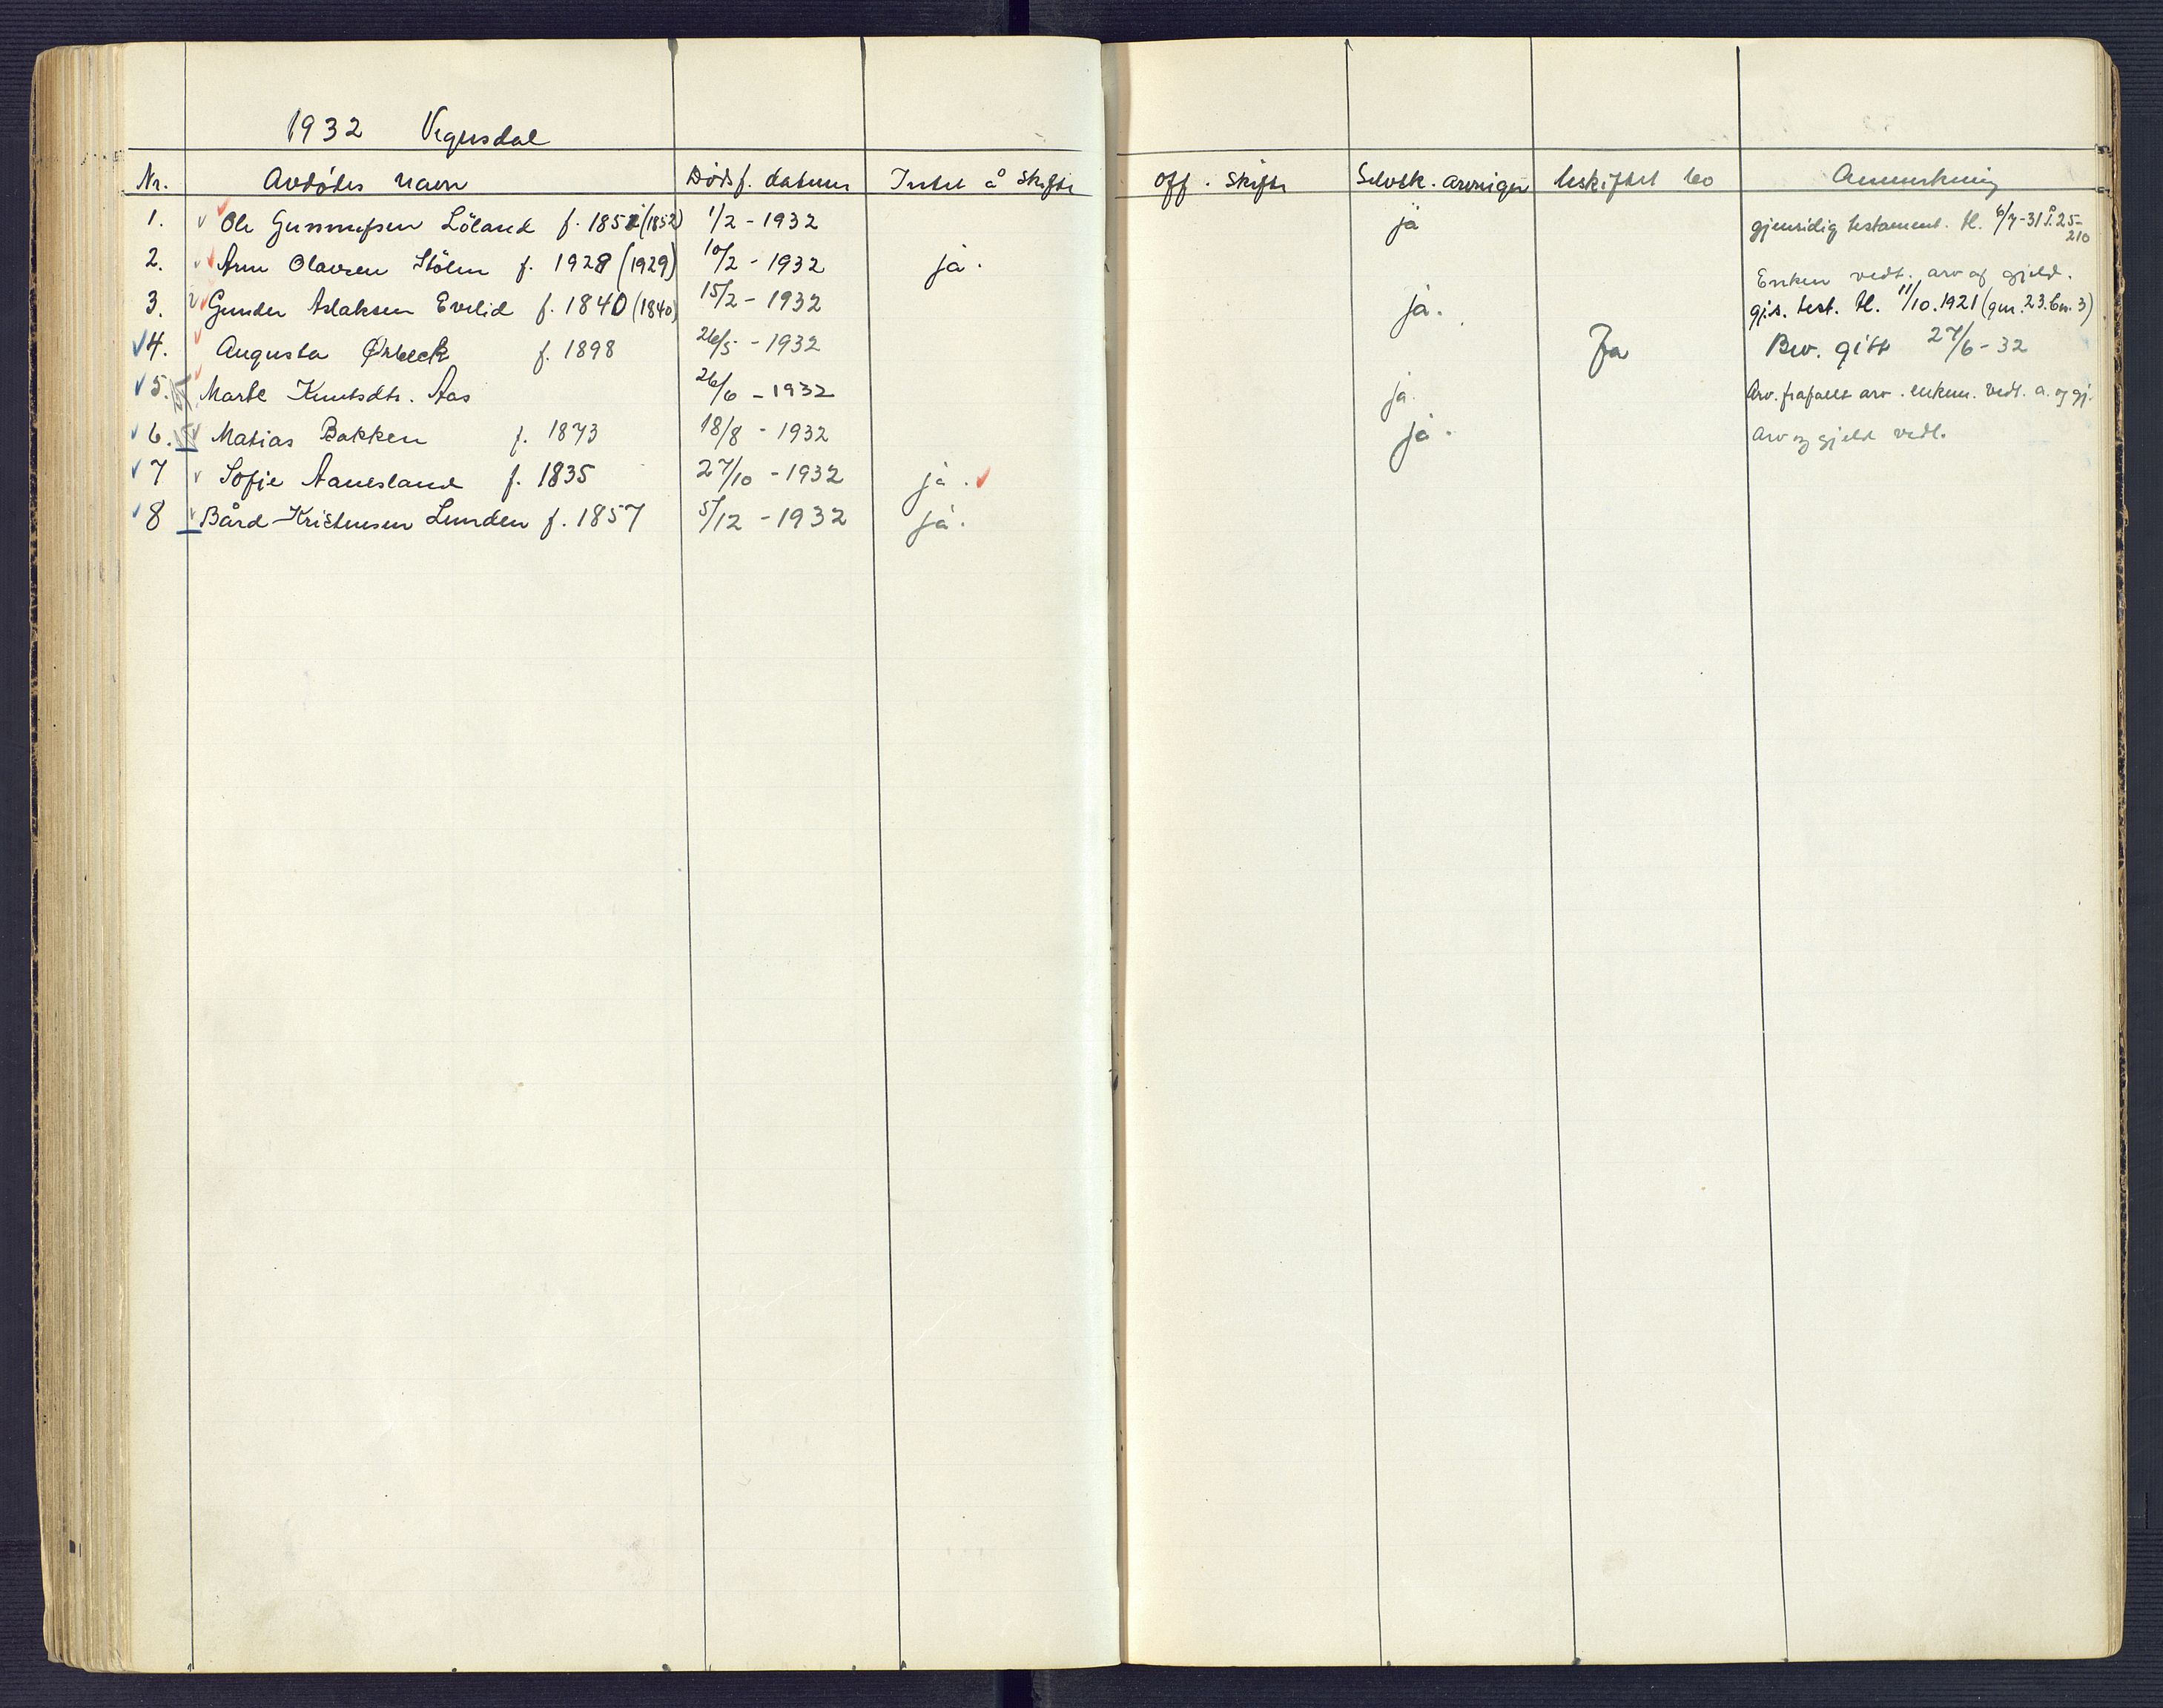 1932 Vegusdal
Nr. Avdødes navn Dødsf. datum Intet å skifte off. skifte Selvsk. arvinger Uskiftet bo Anmerkning
1. Ole Gunnufsen Löland f. 1852 (1852) 1/2 - 1932 ja gjensidig testament. tl. 6/7-31 25-210
2. Arne Olavsen Stölen f. 1928 (1929) 10/2 - 1932 ja.
Enken vedt. arv og gjeld.
3. Gunder Aslaksen Evelid f. 1840 (1840) 15/2 - 1932 ja. gjs. test. tl. 11/10.1921 (gnr. 23. bn. 3)
4. Augusta Ørbeck f. 1898 26/5 - 1932 Ja Bev. gitt 27/6 - 32
5. Marte Knutsdtr. Aas 26/6 - 1932 ja. Arv. frafallt arv. enkem. vedt. a. og gj.
6. Matias Bakken f. 1873 18/8 - 1932 ja. Arv og gjeld vedt.
7 Sofie Aanesland f. 1835 27/10 - 1932 ja.
8 Bård Kristensen Lunden f. 1857 5/12 - 1932 ja.